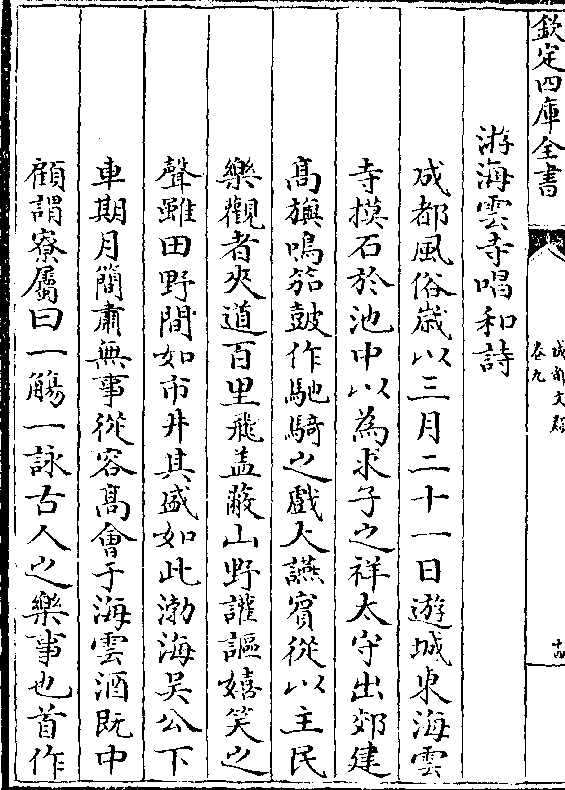 欽定四庫全書
成都文類
卷九
十四
游海雲寺唱和詩
成都風俗歲以三月二十一日遊城東海雲
寺摸石於池中以為求子之祥太守出郊建
髙旟鳴笳鼓作馳騎之戲大讌賓從以主民
樂觀者夾道百里飛盖蔽山野讙謳嬉笑之
聲雖田野間如市井其盛如此渤海吳公下
車期月簡肅無事從容髙會于海雲酒既中
顧謂寮屬曰一觴一詠古人之樂事也首作